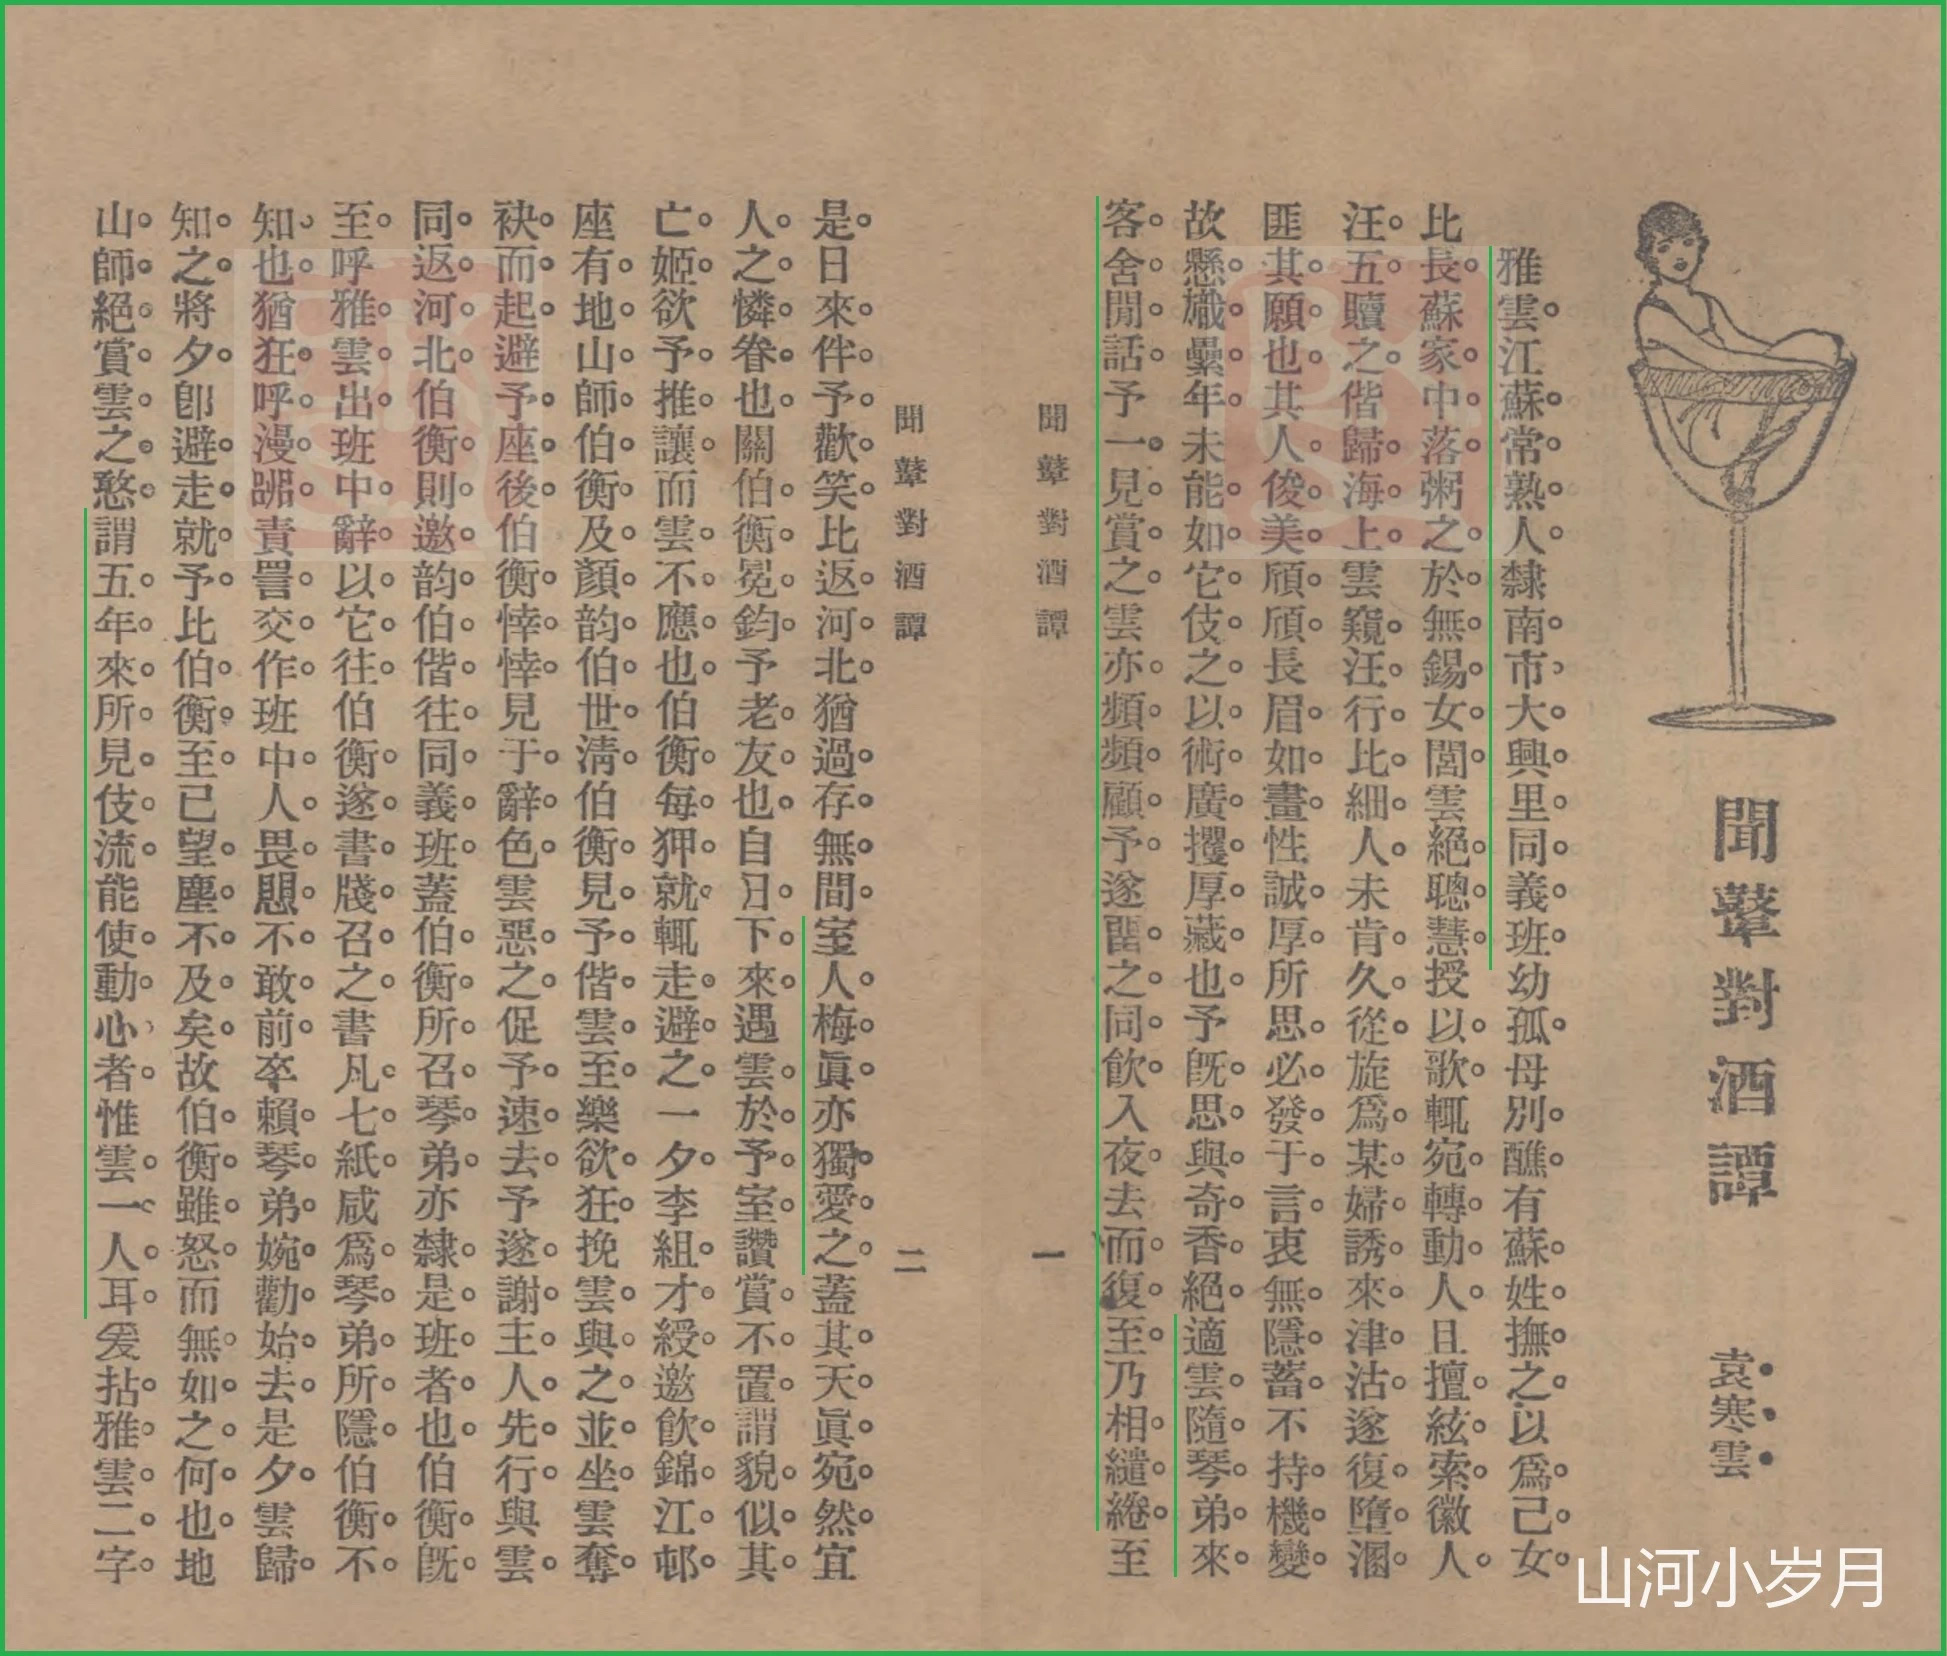 聞鼙對酒譚
袁寒雲
雅雲江蘇常熟人隸南市大興里同義班幼孤母別醮有蘇姓撫之以爲己女
比長蘇家中落粥之於無錫女閭雲絕聰慧授以歌輒宛轉動人且擅絃索徽人
汪五贖之偕歸海上雲窺汪行比細人未肯久從旋爲某婦誘來津沽遂復墮溷
匪其願也其人俊美頎頎長眉如畫性誠厚所思必發于言衷無隱蓄不持機變
故懸幟纍年未能如它伎之以術廣攫厚藏也予旣思與奇香絕適雲隨琴弟來
客舍閒話予一見賞之雲亦頻頻顧予遂畱之同飲入夜去而復至乃相繾綣至
聞鼙對酒譚 一
聞鼙對酒譚 二
是日來伴予歡笑比返河北猶過存無間室人梅眞亦獨愛之蓋其天眞宛然宜
人之憐眷也關伯衡冕鈞予老友也自日下來遇雲於予室讚賞不置謂貌似其
亡姬欲予推讓而雲不應也伯衡每狎就輒走避之一夕李組才綬邀飲錦江邨
座有地山師伯衡及顏韵伯世淸伯衡見予偕雲至樂欲狂挽雲與之並坐雲奪
袂而起避予座後伯衡悻悻見于辭色雲惡之促予速去予遂謝主人先行與雲
同返河北伯衡則邀韵伯偕往同義班蓋伯衡所召琴弟亦隸是班者也伯衡旣
至呼雅雲出班中辭以它往伯衡遂書牋召之書凡七紙咸爲琴弟所隱伯衡不
知也猶狂呼漫謿責詈交作班中人畏恩不敢前卒賴琴弟婉勸始去是夕雲歸
知之將夕卽避走就予比伯衡至已望塵不及矣故伯衡雖怒而無如之何也地
山師絕賞雲之憨謂五年來所見伎流能使動心者惟雲一人耳爰拈雅雲二字
山河小岁月